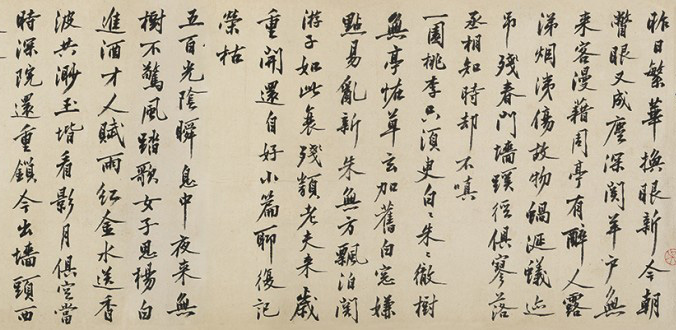 昨日繁華換眼新今朝
瞥眼又成塵深関羊戶無
来客漫藉周亭有醉人露
涕烟洟傷故物蝸涎蟻迹
吊殘春門墻蹊徑俱寥落
丞相知時却不嗔
一園桃李只須臾白〻朱〻徹樹
無亭怪草玄加舊白窓嫌
點易亂新朱無方飄泊関
游子如此衰殘類老夫来歲
重開還自好小篇聊復記
榮枯
五百光陰瞬息中夜来無
樹不驚風踏歌女子思楊白
進酒才人賦雨紅金水送香
波共渺玉堦看影月俱空當
時深院還重鎖今出墻頭西